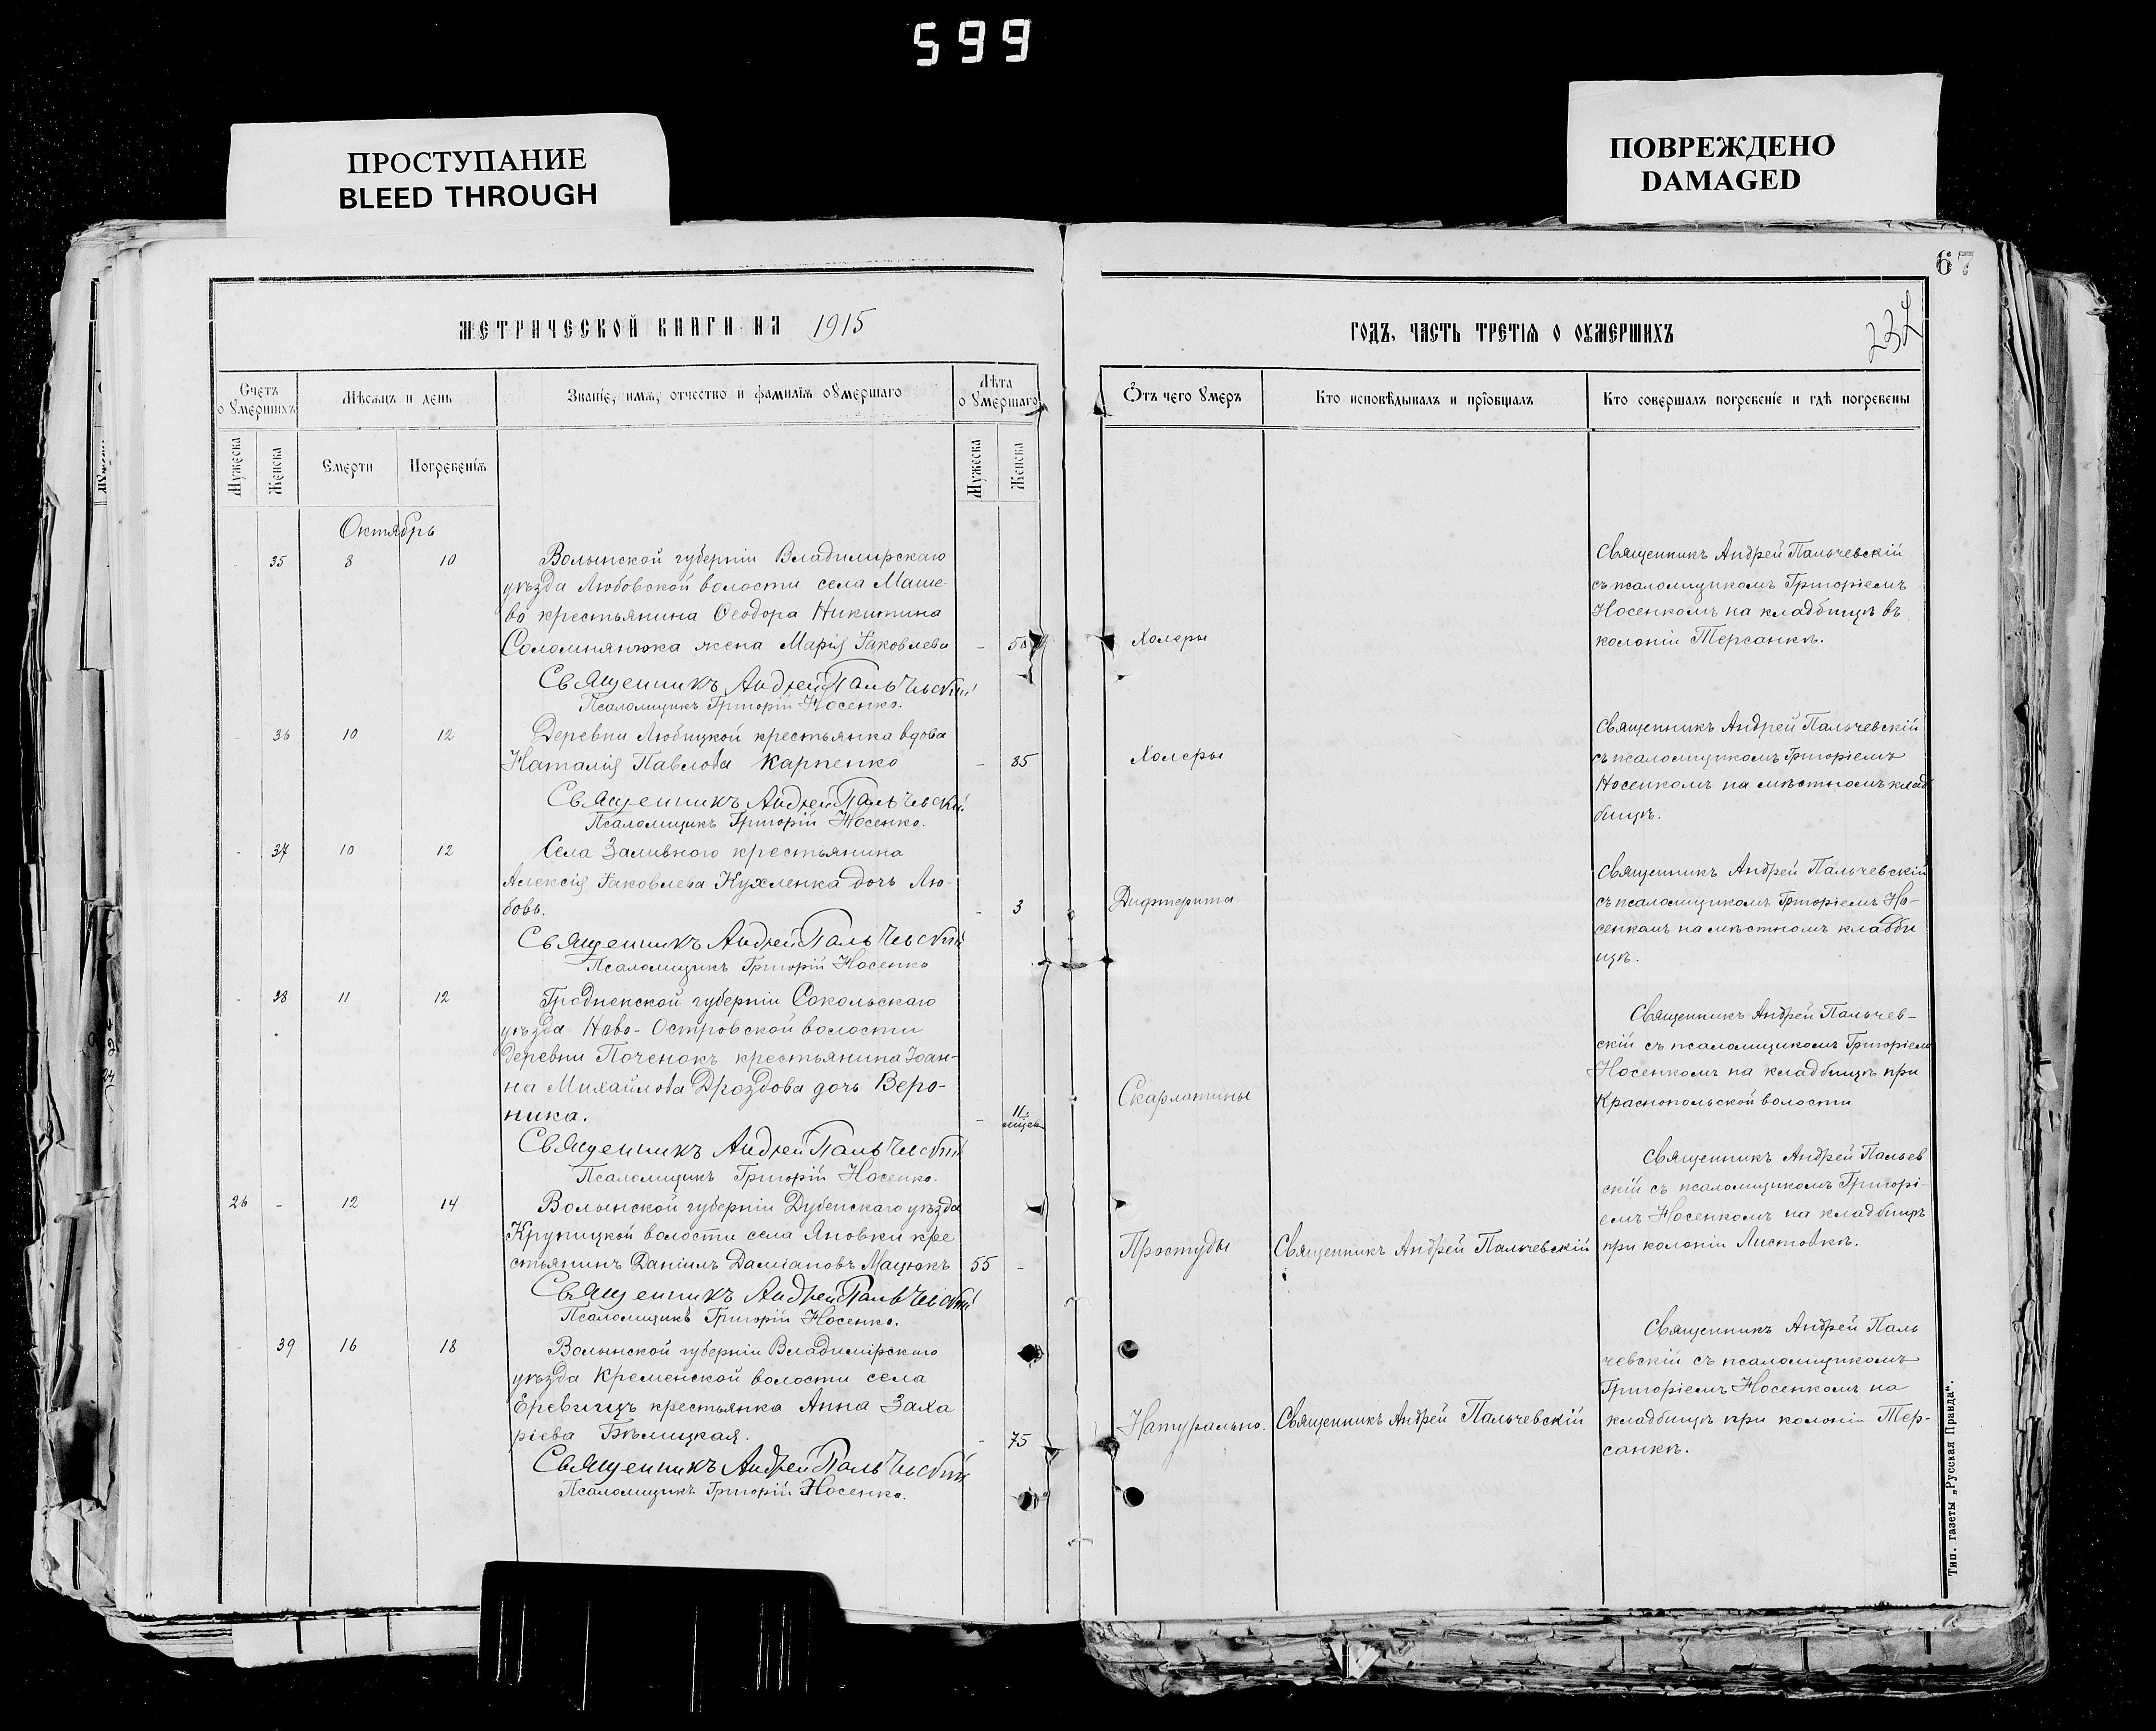 599
ПРОСТУПАНИЕ
BLEED THROUGH
ПОВРЕЖДЕНО
DAMAGED
67
МЕТРИЧЕСКОЙ КНИГИ НА 1915
ГОДЪ, ЧАСТЬ ТРЕТІѦ О ОУМЕРШИХЪ
237
Счетъ оумершихъ
Мѣсяцъ и день
Званіе, имя, отчество и фамилія оумершаго
Лѣта оумершаго
Отъ чего умеръ
Кто исповѣдывалъ и пріобщалъ
Кто совершалъ погребеніе и гдѣ погребены
Мужеска
Женска
Смерти
Погребенія
Мужеска
Женска
Октябрь
- 35 8 10 Волынской губерніи Владимирскаго
уѣзда Любовской волости села Маше-
во крестьянина Ѳеодора Никитина
Соломнянюка жена Марія Іаковлева - 50
Священникъ Андрей Пальчевскій
Псаломщикъ Григорій Носенко.
Холеры
Священникъ Андрей Пальчевскій
съ псаломщикомъ Григоріемъ
Носенкомъ на кладбищѣ въ
колоніи Терсанкѣ.
- 36 10 12 Деревни Любицкой крестьянка вдова
Наталія Павлова Карпенко - 85
Священникъ Андрей Пальчевскій
Псаломщикъ Григорій Носенко.
Холеры
Священникъ Андрей Пальчевскій
съ псаломщикомъ Григоріемъ
Носенкомъ на мѣстномъ клад
бищѣ.
- 37 10 12 Села Заливного крестьянина
Алексія Іаковлева Кухленка дочь Лю-
бовь. - 3
Священникъ Андрей Пальчевскій
Псаломщикъ Григорій Носенко
Дифтерита
Священникъ Андрей Пальчевскій
съ псаломщикомъ Григоріемъ Но-
сенкомъ на мѣстномъ кладби
щѣ.
- 38 11 12 Гродненской губерніи Сокольскаго
уѣзда Ново-Островской волости
деревни Поченокъ крестьянина Іоан-
на Михайлова Дроздова дочь Веро-
ника. - 11
Священникъ Андрей Пальчевскій
Псаломщикъ Григорій Носенко.
Скарлатины
Священникъ Андрей Пальчев-
скій съ псаломщикомъ Григоріемъ
Носенкомъ на кладбищѣ при
Краснопольской волости
26 - 12 14 Волынской губерніи Дубенскаго уѣзда
Крупицкой волости села Яновки кре
стьянинъ Даніилъ Даміановъ Мацюкъ 55 -
Священникъ Андрей Пальчевскій
Псаломщикъ Григорій Носенко.
Простуды
Священникъ Андрей Пальчевскій
Священникъ Андрей Пальев
скій съ псаломщикомъ Григорі-
емъ Носенкомъ на кладбищѣ
при колоніи Листовкѣ.
- 39 16 18 Волынской губерніи Владимірскаго
уѣзда Кременской волости села
Еревичъ крестьянка Анна Заха
ріева Бѣлицкая. - 75
Священникъ Андрей Пальчевскій
Псаломщикъ Григорій Носенко.
Натурально.
Священникъ Андрей Пальчевскій
Священникъ Андрей Паль
чевскій съ псаломщикомъ
Григоріемъ Носенкомъ на
кладбищѣ при колоніи Тер-
санкѣ.
Тип. газеты „Русская Правда“.